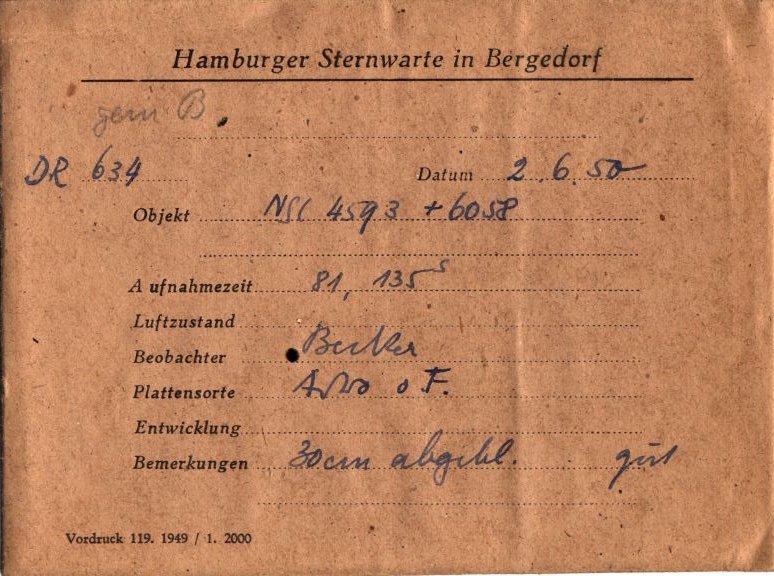 Hamburger Sternwarte in Bergedorf
gem B
DR 634 Datum 2.6.50
Objekt NGC 4593 + 6058
Aufnahmezeit 81, 135 s
Luftzustand
Beobachter Becker
Plattensorte Astro o F.
Entwicklung
Bemerkungen 30cm abgebl. gut
Vordruck 119. 1949 / 1. 2000